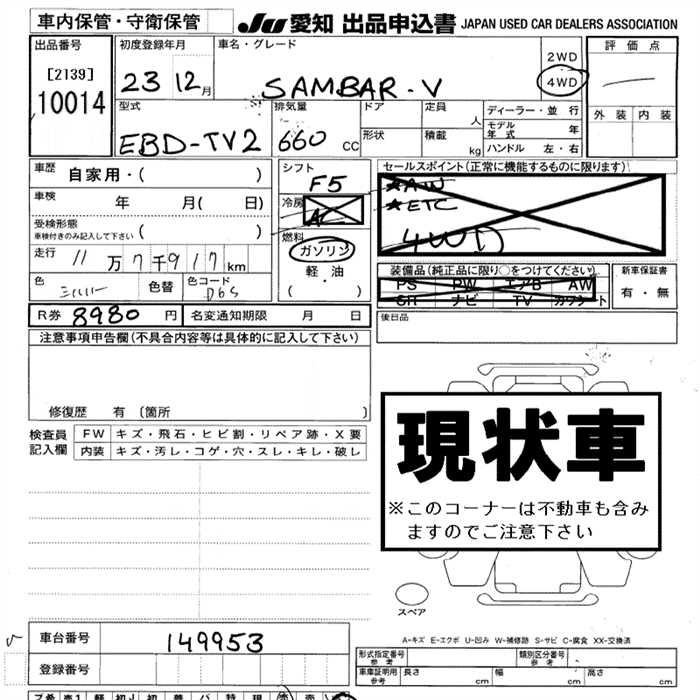 車内保管・守衛保管
JU 愛知 出品申込書 JAPAN USED CAR DEALERS ASSOCIATION
出品番号
[2139]
10014
初度登録年月
23 12月
車名・グレード
SAMBAR-V
2WD
4WD
評価点
外装 内装
型式
EBD-TV2
排気量
660 CC
ドア
形状
定員
人
積載
kg
ディーラー・並行
モデル年式 年
ハンドル 左・右
車歴 自家用・( )
車検 年 月( 日)
受検形態
車検付きのみ記入して下さい ( )
走行 11万7千917km
色 シルバー
色替
色コード D6S
シフト
F5
冷房
AC
燃料
ガソリン
軽・油
( ・ )
セールスポイント(正常に機能するものに限ります)
★AW
★ETC
4WD
装備品(純正品に限り○をつけてください)
PS PW エアB AW
SR ナビ TV カワシート
新車保証書
有・無
R券 8980 円
名変通知期限 月 日
後日品
注意事項申告欄(不具合内容等は具体的に記入して下さい)
修復歴 有 〔箇所 〕
検査員記入欄
FW キズ・飛石・ヒビ割・リペア跡・X要
内装 キズ・汚レ・コゲ・穴・スレ・キレ・破レ
現状車
※このコーナーは不動車も含み
ますのでご注意下さい
スペア
A-キズ E-エクボ U-凹み W-補修跡 S-サビ C-腐食 XX-交換済
車台番号 149953
登録番号
形式指定番号 参考
類別区分番号 参考
車庫証明用 参考
長さ cm
幅 cm
高さ cm